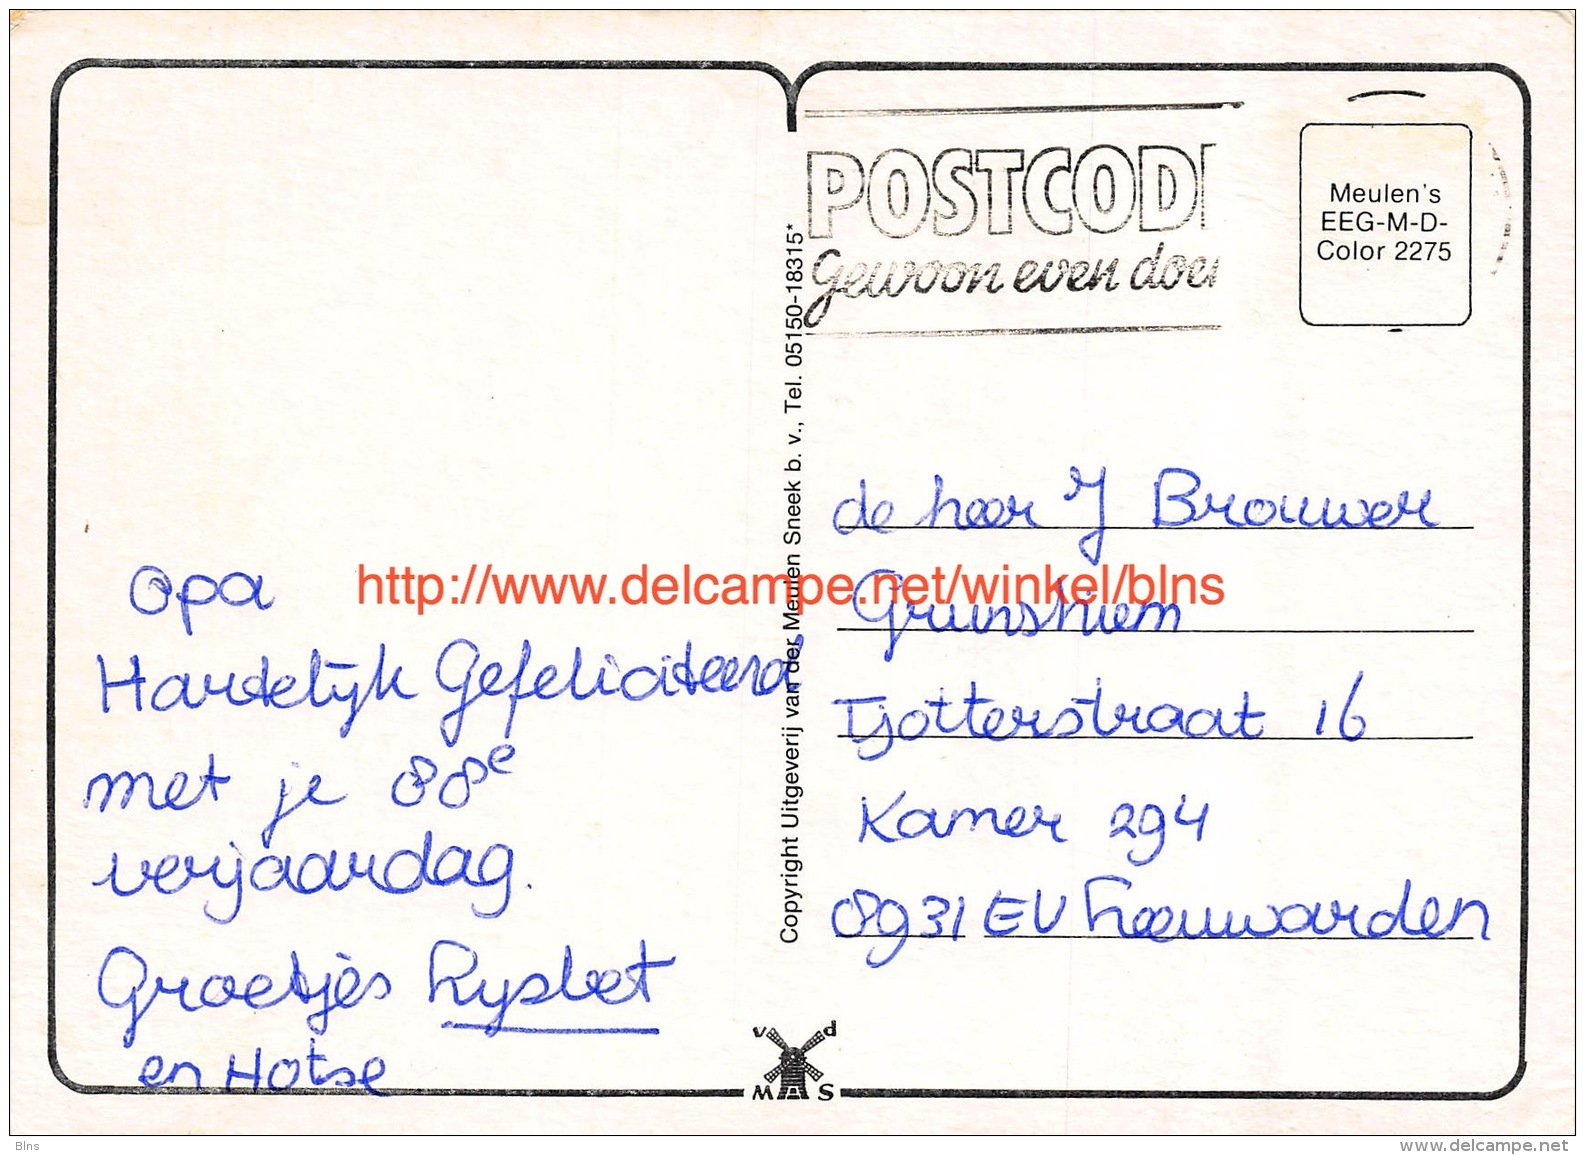 POSTCODE
gewoon even doen
Meulen's
EEG-M-D-
Color 2275
Copyright Uitgeverij van der Meulen Sneek b. v., Tel. 05150-18315*
Opa
Hartelijk Gefeliciteerd
met je 88e
verjaardag.
Groetjes Lysbet
en Hotse
de heer J Brouwer
Grunshiem
Tjotterstraat 16
Kamer 294
8931 EV Leeuwarden
http://www.delcampe.net/winkel/blns
v d
M A S
Blns
www.delcampe.net